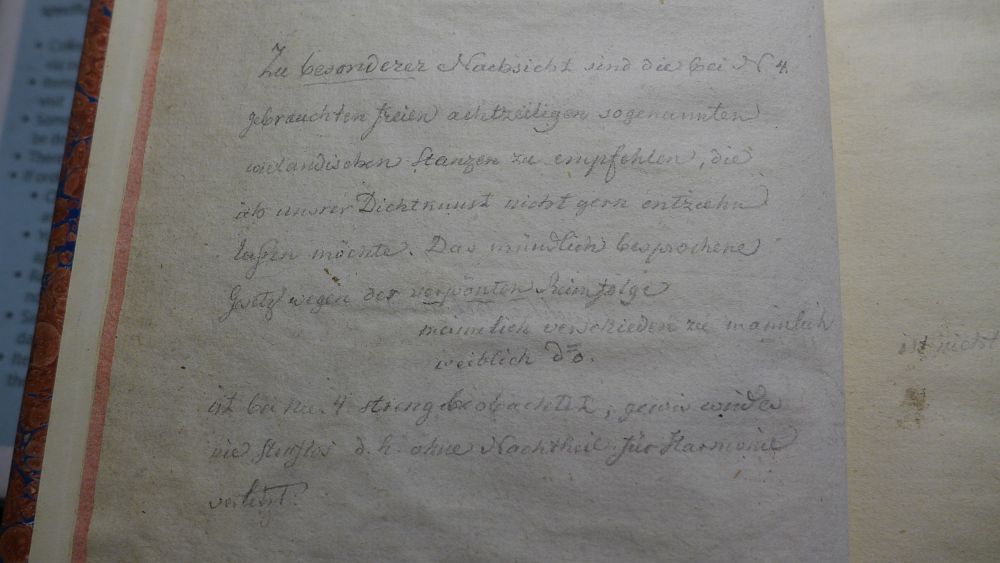 specifi
Zu besonderer Nachsicht sind die bei N 4.
gebrauchten freien achtzeiligen sogenannten
wielandischen Stanzen zu empfehlen, die
ich unsrer Dichtkunst nicht gern entziehn
laßen möchte. Das mündlich besprochene
Gesetz wegen der verpönten Reimfolge
männlich verschieden zu männlich
weiblich do.
ist bei No. 4 streng beobachtet, gewis wird es
nie straflos d. h. ohne Nachtheil für Harmonie
verletzt.
ist nicht